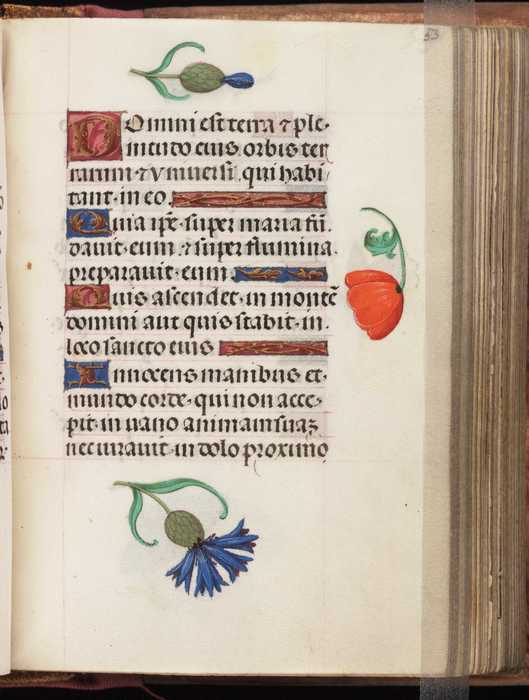 53
Domini est terra ⁊ ple-
nitudo eius orbis ter
rarum ⁊ vniuersi qui habi-
tant in eo
Quia ip̄e super maria fū
dauit eum ⁊ super flumina
preparauit eum
Quis ascendet in montē
domini aut quis stabit in
loco sancto eius
Innocens manibus et
mundo corde qui non acce-
pit in uano animam suaꝫ
nec iurauit in dolo proximo